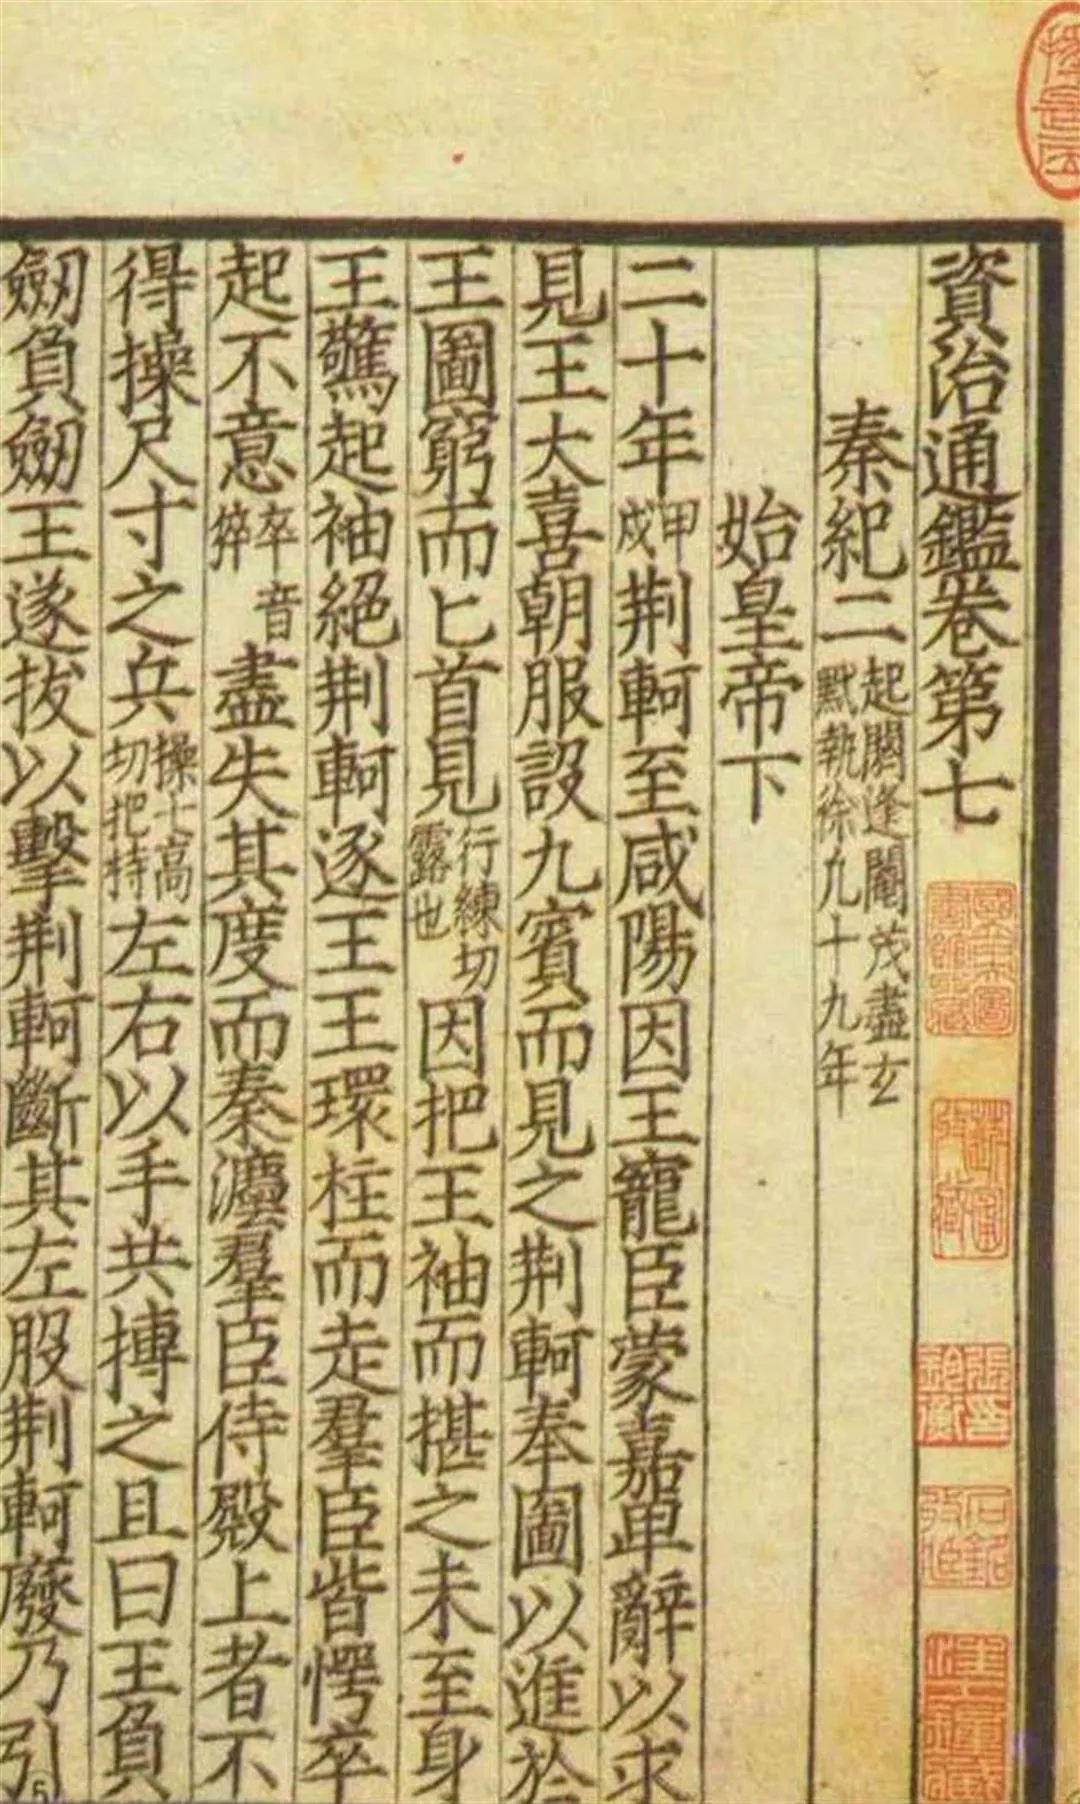 資治通鑑卷第七
秦紀二 起閼逢閹茂盡玄黓執徐九十九年
始皇帝下
二十年甲戌荆軻至咸陽因王寵臣蒙嘉卑辭以求
見王大喜朝服設九賓而見之荆軻奉圖以進於
王圖窮而匕首見行練切露也因把王袖而揕之未至身
王驚起袖絕荆軻逐王王環柱而走羣臣皆愕卒
起不意卒音猝盡失其度而秦灋羣臣侍殿上者不
得操尺寸之兵操七高切把持左右以手共搏之且曰王負
劒負劒王遂拔以擊荆軻斷其左股荆軻廢乃引
5